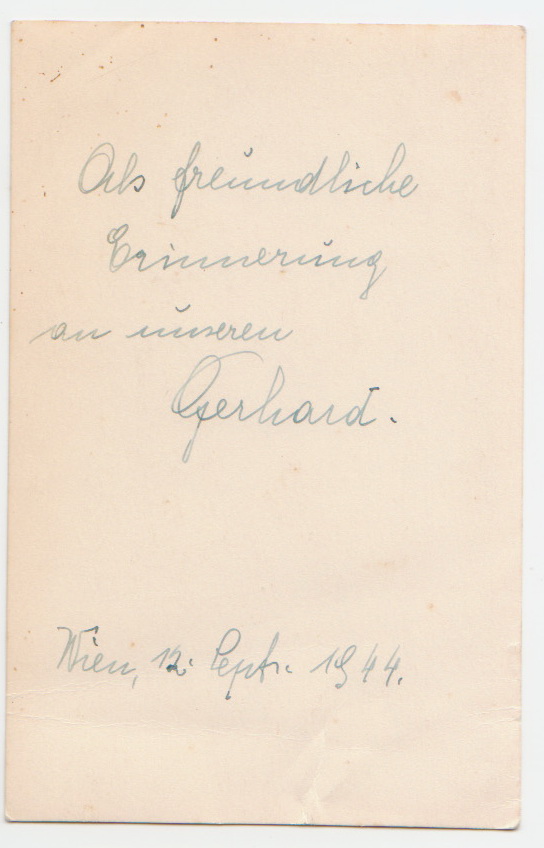 Als freundliche
Erinnerung
an unseren
Gerhard.
Wien, 12. Sept. 1944.